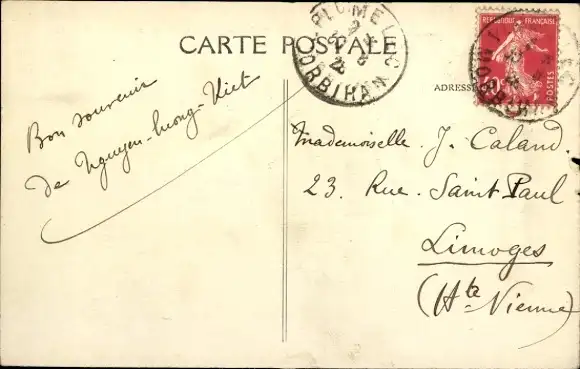 CARTE POSTALE
PLUMELEC
MORBIHAN
REPUBLIQUE FRANÇAISE
POSTES
ADRESSE
Bon souvenir
de Nguyen-huong-Viet
Mademoiselle J. Caland.
23. Rue Saint Paul
Limoges
(Hte Vienne)